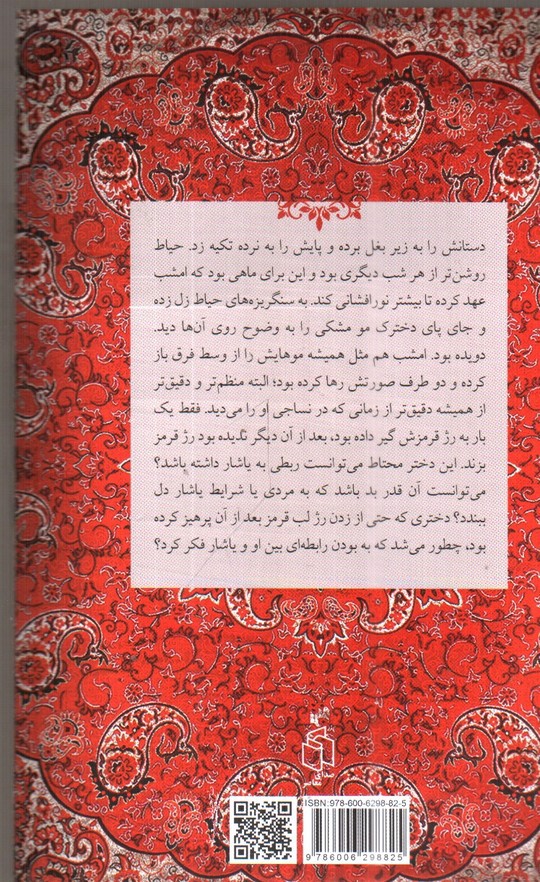 دستانش را به زیر بغل برده و پایش را به نرده تکیه زد. حیاط
روشن‌تر از هر شب دیگری بود و این برای ماهی بود که امشب
عهد کرده تا بیشتر نورافشانی کند. به سنگریزه‌های حیاط زل زده
و جای پای دخترک مو مشکی را به وضوح روی آن‌ها دید.
دویده بود. امشب هم مثل همیشه موهایش را از وسط فرق باز
کرده و دو طرف صورتش رها کرده بود؛ البته منظم‌تر و دقیق‌تر
از همیشه دقیق‌تر از زمانی که در نساجی او را می‌دید. فقط یک
بار به رژ قرمزش گیر داده بود، بعد از آن دیگر ندیده بود رژ قرمز
بزند. این دختر محتاط می‌توانست ربطی به یاشار داشته باشد؟
می‌توانست آن قدر بد باشد که به مردی با شرایط یاشار دل
ببندد؟ دختری که حتی از زدن رژ لب قرمز بعد از آن پرهیز کرده
بود، چطور می‌شد که به بودن رابطه‌ای بین او و یاشار فکر کرد؟
صدای
معاصر
ISBN: 978-600-6298-82-5
9 786006 298825